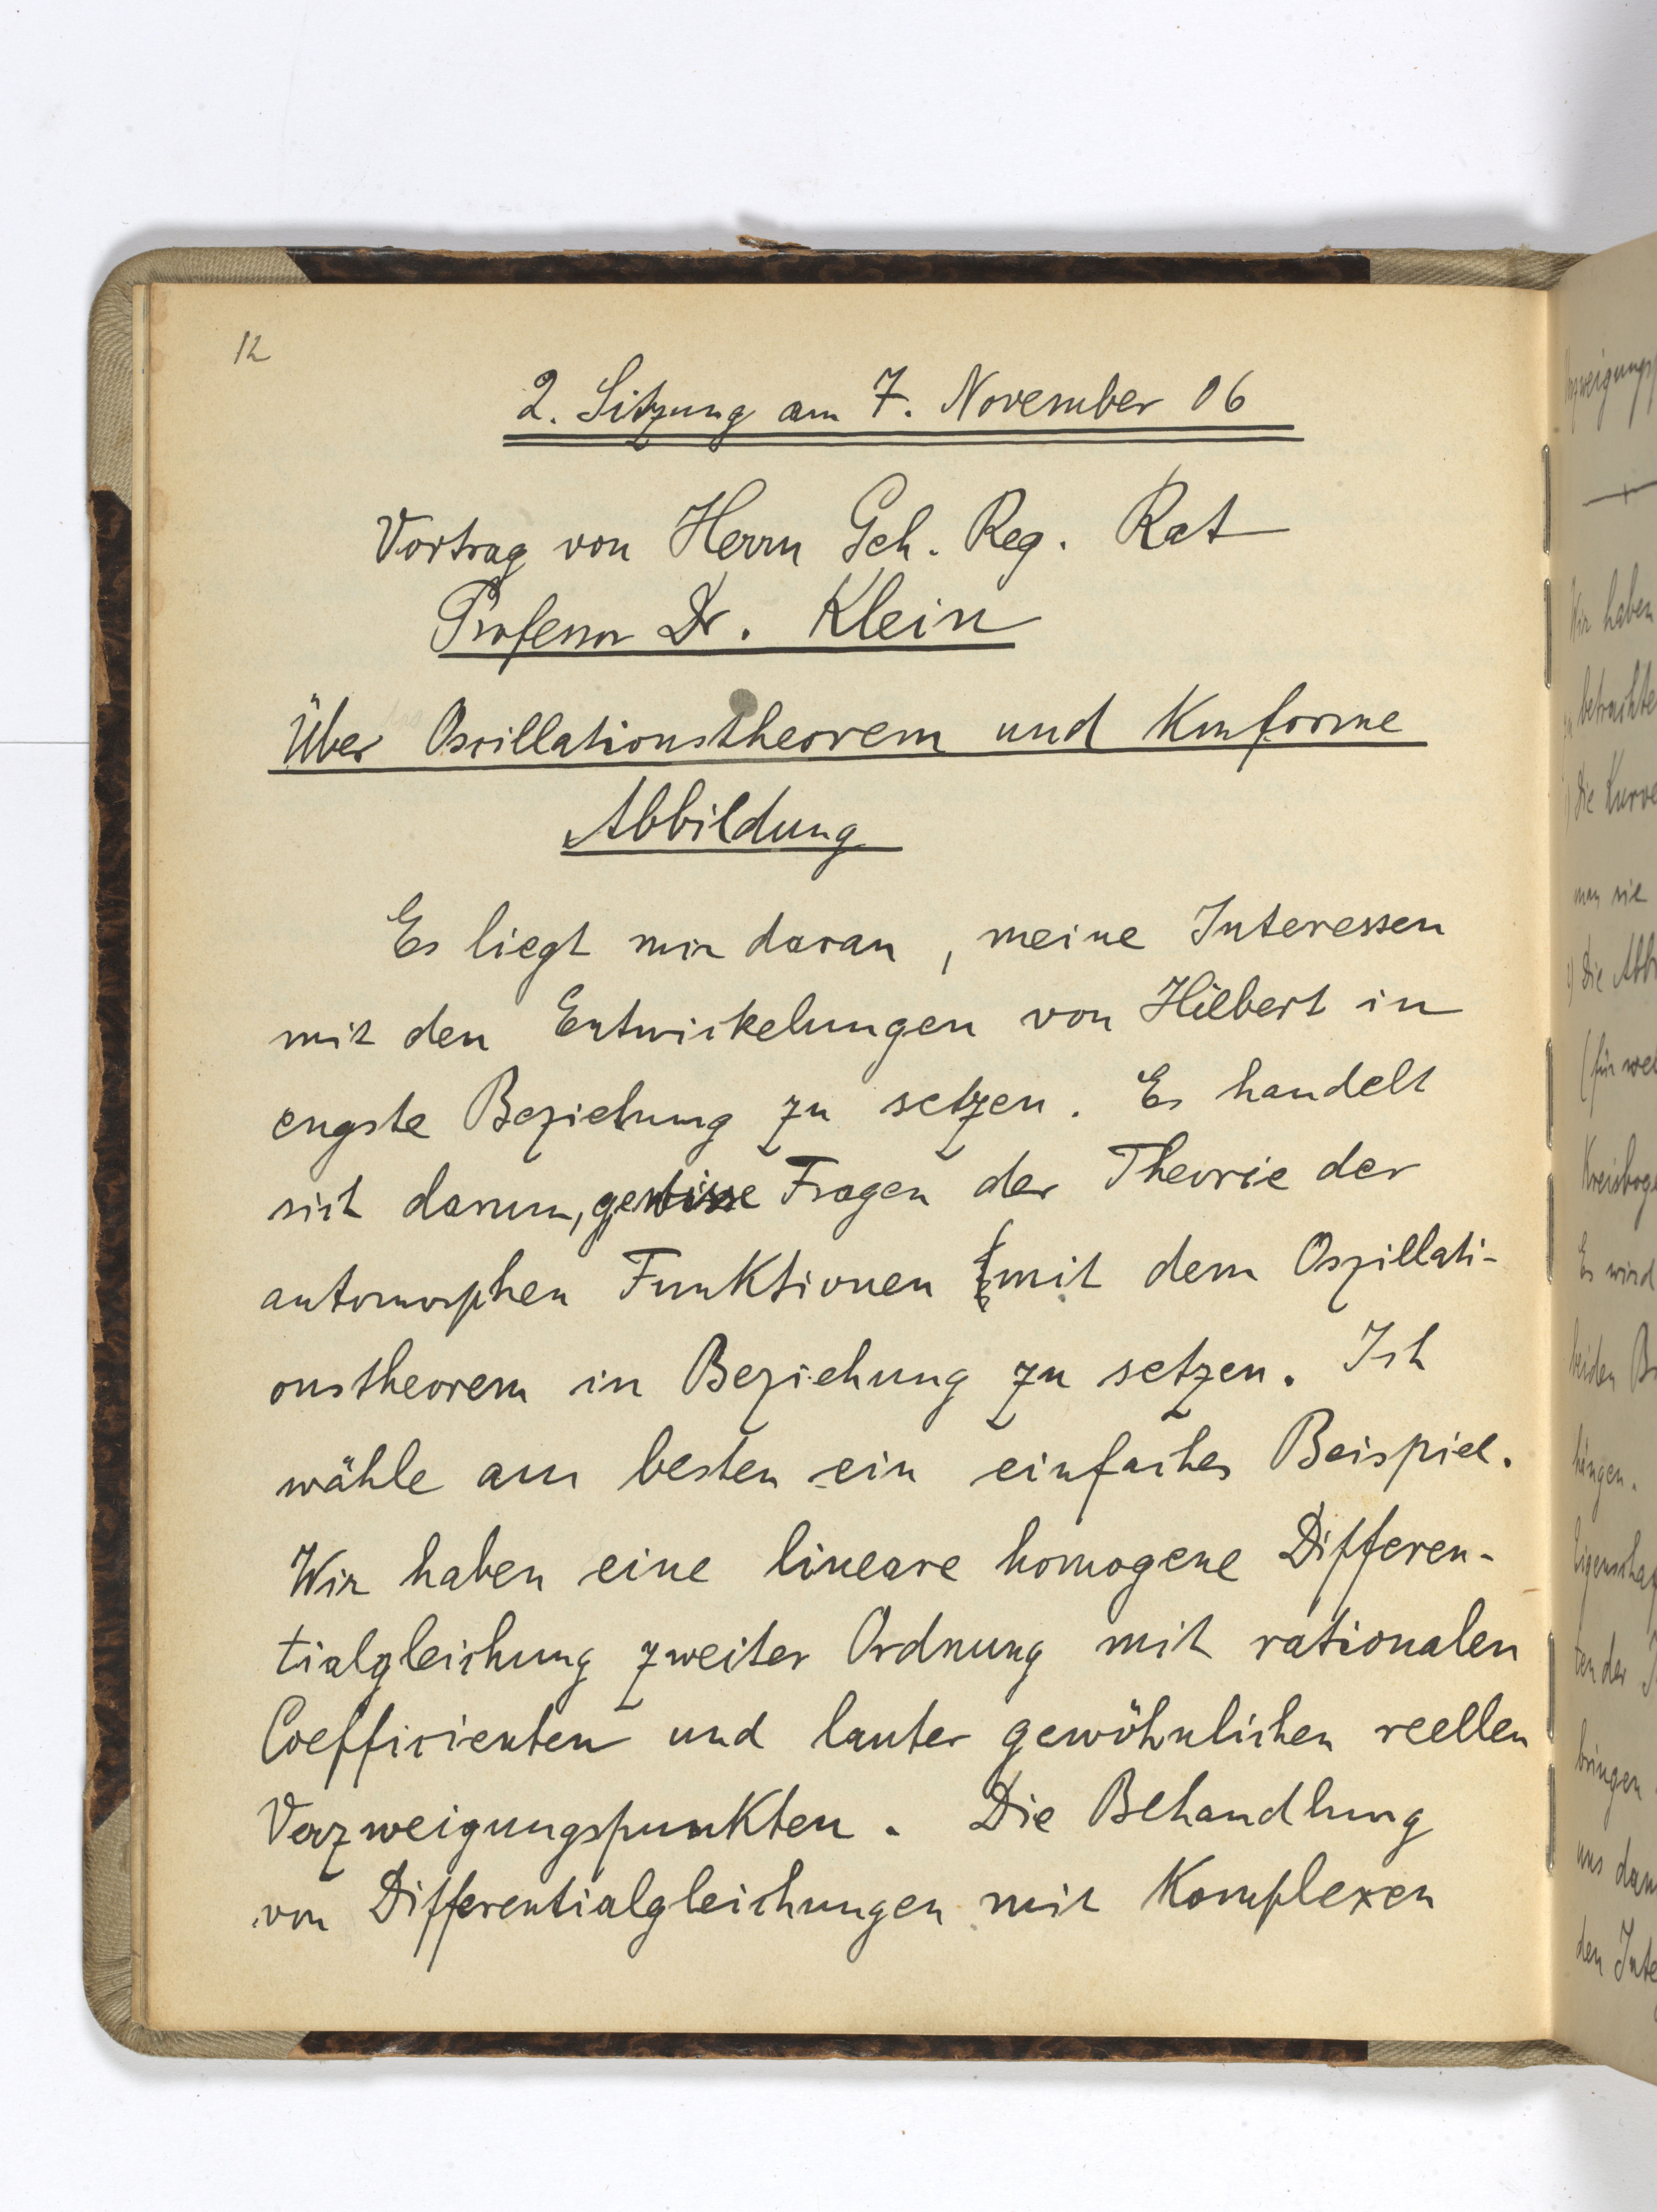 12
2. Sitzung am 7. November 06
Vortrag von Herrn Geh. Reg. Rat
Professor Dr. Klein
Über Oscillationstheorem und Konforme
Abbildung
Es liegt mir daran, meine Interessen
mit den Entwickelungen von Hilbert in
engste Beziehung zu setzen. Es handelt
sich darum, gewisse Fragen der Theorie der
automorphen Funktionen mit dem Oszillati-
onstheorem in Beziehung zu setzen. Ich
wähle am besten ein einfaches Beispiel.
Wir haben eine lineare homogene Differen-
tialgleichung zweiter Ordnung mit rationalen
Coefficienten und lauter gewöhnlichen reellen
Verzweigungspunkten. Die Behandlung
von Differentialgleichungen mit Komplexen
Wir haben
betrachte
Die Kurve
man sie
Die Abb
(für wel
Kreisboge
Es wird
beiden B
hängen.
Eigenschaf
ten der I
bringen
uns dann
den Inte